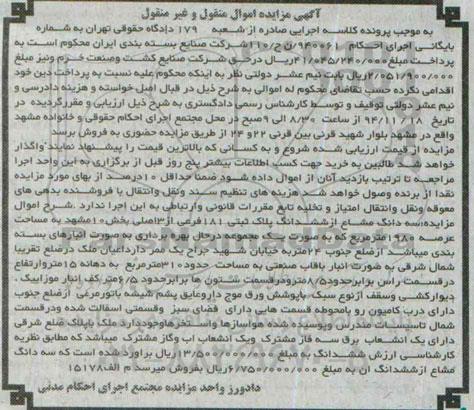 آگهی مزایده اموال منقول و غیر منقول
به موجب پرونده کلاسه اجرایی صادره از شعبه ۱۷۹ دادگاه حقوقی تهران به شماره
بایگانی اجرای احکام ۹۴۰۰۶۱/ن ج/۱۱۰ شرکت صنایع بسته بندی ایران محکوم است به
پرداخت مبلغ ۴۱/۰۴۵/۲۴۰/۰۰۰ریال در حق شرکت صنایع کشت وصنعت خرم ونیز مبلغ
۲/۰۵۱/۹۰۰/۰۰۰ریال بابت نیم عشر دولتی نظر به اینکه محکوم علیه نسبت به پرداخت دین خود
اقدامی نکرده حسب تقاضای محکوم له اموالی به شرح ذیل در قبال اصل خواسته و هزینه دادرسی و
نیم عشر دولتی توقیف و توسط کارشناس رسمی دادگستری به شرح ذیل ارزیابی و مقرر گردیده در
تاریخ ۹۴/۱۱/۱۸ از ساعت ۸/۳۰ الی ۹صبح در محل مجتمع اجرای احکام حقوقی و خانواده مشهد
واقع در مشهد بلوار شهید قرنی بین قرنی ۲۲و ۲۴ از طریق مزایده حضوری به فروش برسد
مزایده از قیمت ارزیابی شده شروع و به کسانی که بالاترین قیمت را پیشنهاد نمایند واگذار
خواهد شد . طالبین به خرید جهت کسب اطلاعات بیشتر پنج روز قبل از برگزاری به این واحد اجرا
مراجعه تا ترتیب بازدید آنان از اموال داده شود ضمنا حداقل ۱۰درصد از بهای مورد مزایده
نقدا از برنده وصول خواهد شد هزینه های تنظیم سند ونقل وانتقال با فروشنده بدهی های
معوقه ونقل وانتقال امتیاز و تخلیه تابع مقررات قانونی وارتباطی به این اجرا ندارد .شرح اموال
مزایده:سه دانگ مشاع ازششدانگ پلاک ثبتی ۱۸۱فرعی از۳اصلی بخش۱۰مشهد به مساحت
عرصه ۱۹۸۰مترمربع که به صورت یک مجموعه درحال بهره برداری به صورت انبارهای بسته
بندی میباشد ازضلع جنوب ۲۴متربه خیابان شهید جراح یک ممر داراعیان ملک درضلع تقریبا
شمال شرقی به صورت انبار باقاب صنعتی به مساحت حدود۳۱۰مترمربع به دهانه ۱۵متروارتفاع
درقسمت راس برابرحدود۸/۵متردرقسمت ستون ها برابرحدود ۶/۵مترکف انبار موزاییک .
دیوارکشی وسقف ازنوع سبک .باپوشش ورق موج داروعایق پشم شیشه باتورمرغی .ازضلع جنوب
دارای درب کامیون رو بامحوطه قسمت هایی دارای فضای سبز وقسمتی اسفالت شده ودرقسمت
شمال تاسیسات مندرس وپوسیده شده هواسازها واستخرهاوجوددارد ملک باپلاک ضلع شرقی
دارای یک انشعاب برق سه فاز مشترک ویک انشعاب اب وگاز مشترک میباشد که مطابق نظریه
کارشناسی ارزش ششدانگ به مبلغ ۱۳/۵۰۰/۰۰۰/۰۰۰ریال براورد شده است که سه دانگ
مشاع ازششدانگ ان به مبلغ ۶/۷۵۰/۰۰۰/۰۰۰ریال بفروش میرسد م الف۱۵۱۷۸
دادورز واحد مزایده مجتمع اجرای احکام مدنی